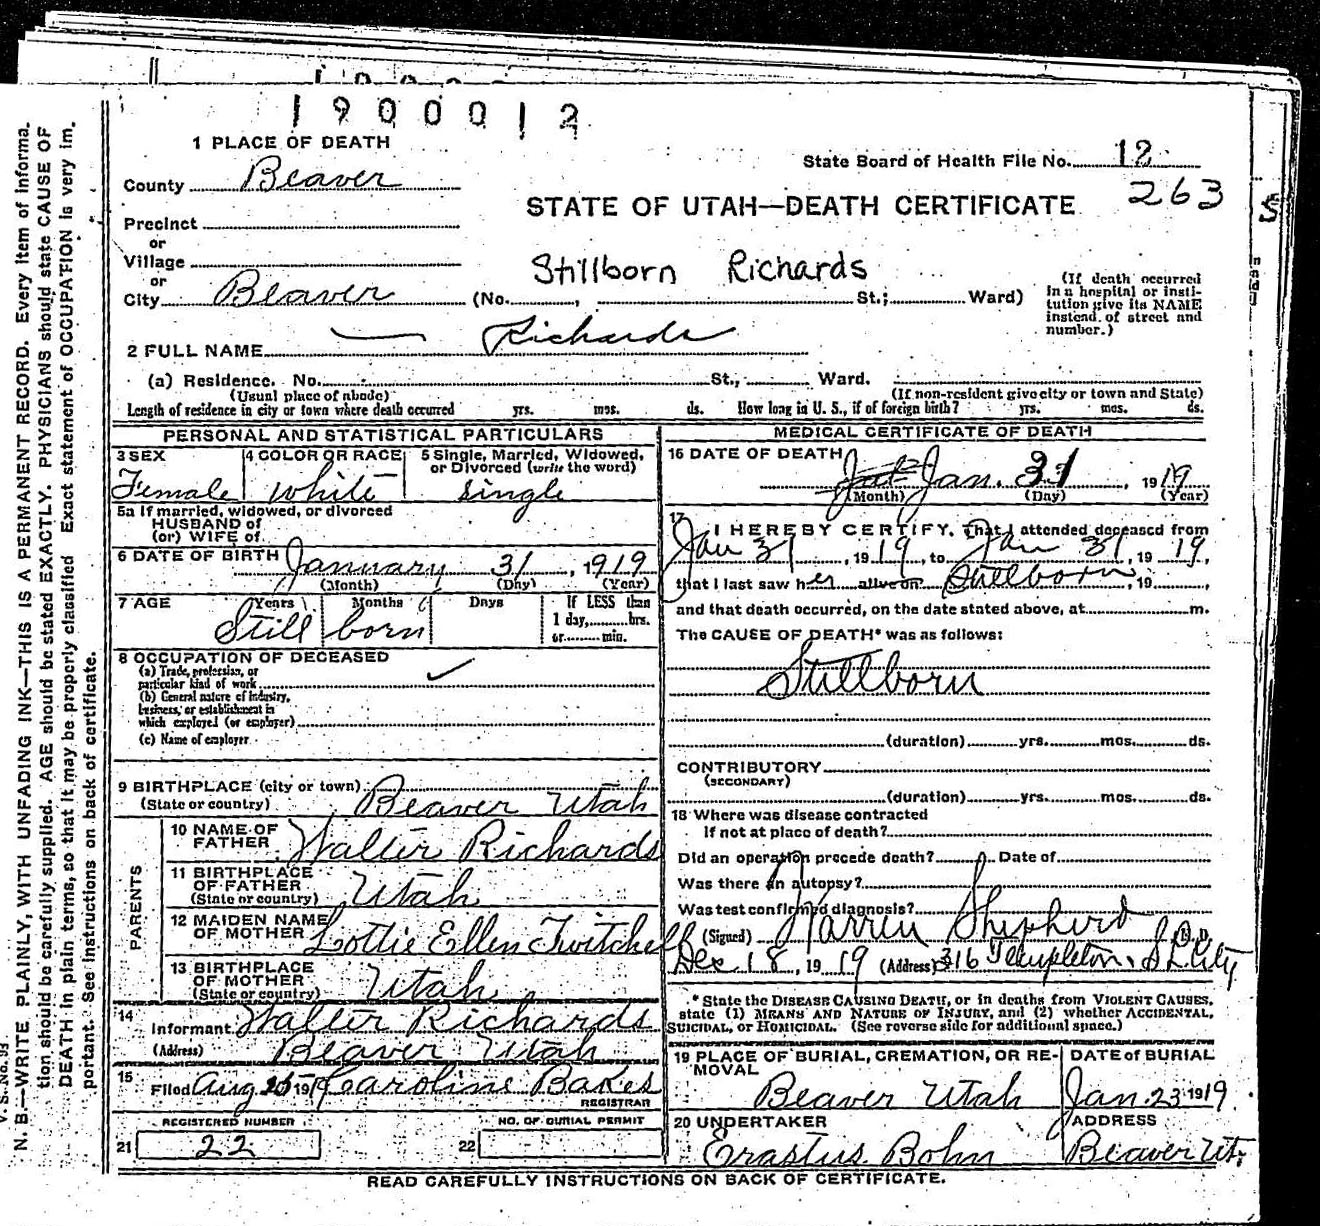 1900012
1 PLACE OF DEATH
State Board of Health File No. 12
County Beaver
263
STATE OF UTAH—DEATH CERTIFICATE
Precinct
or
Village
Stillborn Richards
or
City Beaver (No. , St.; Ward)
(If death occurred in a hospital or insti-
tution give its NAME
instead of street and
number.)
2 FULL NAME — Richards
(a) Residence. No. St., Ward.
(Usual place of abode)
(If non-resident give city or town and State)
Length of residence in city or town where death occurred yrs. mos. ds. How long in U. S., if of foreign birth? yrs. mos. ds.
PERSONAL AND STATISTICAL PARTICULARS
3 SEX
Female
4 COLOR OR RACE
white
5 Single, Married, Widowed,
or Divorced (write the word)
single
5a If married, widowed, or divorced
HUSBAND of
(or) WIFE of
6 DATE OF BIRTH January 31, 1919
(Month) (Day) (Year)
7 AGE Years Months Days If LESS than
1 day, hrs.
or min.
Still born
8 OCCUPATION OF DECEASED
(a) Trade, profession, or
particular kind of work
(b) General nature of industry,
business, or establishment in
which employed (or employer)
(c) Name of employer
9 BIRTHPLACE (city or town)
(State or country) Beaver Utah
PARENTS
10 NAME OF
FATHER Walter Richards
11 BIRTHPLACE
OF FATHER
(State or country) Utah
12 MAIDEN NAME
OF MOTHER Lottie Ellen Twitchell
13 BIRTHPLACE
OF MOTHER
(State or country) Utah
14
Informant Walter Richards
(Address) Beaver Utah
15
Filed Aug 1919 Caroline Bakes
REGISTRAR
REGISTERED NUMBER
21 22
NO. OF BURIAL PERMIT
22
MEDICAL CERTIFICATE OF DEATH
16 DATE OF DEATH
Jan. 31, 1919
(Month) (Day) (Year)
17
I HEREBY CERTIFY, That I attended deceased from
Jan 31, 1919, to Jan 31, 1919,
that I last saw her alive on Stillborn, 19 ,
and that death occurred, on the date stated above, at m.
The CAUSE OF DEATH* was as follows:
Stillborn
(duration) yrs. mos. ds.
CONTRIBUTORY
(SECONDARY)
(duration) yrs. mos. ds.
18 Where was disease contracted
if not at place of death?
Did an operation precede death? Date of
Was there an autopsy?
Was test confirmed diagnosis?
(Signed) Warren Shepherd, M. D.
Dec 18, 1919 (Address) 316 Templeton, S L City
* State the DISEASE CAUSING DEATH, or in deaths from VIOLENT CAUSES,
state (1) MEANS AND NATURE OF INJURY, and (2) whether ACCIDENTAL,
SUICIDAL, or HOMICIDAL. (See reverse side for additional space.)
19 PLACE OF BURIAL, CREMATION, OR RE-
MOVAL
Beaver Utah
DATE of BURIAL
Jan. 23 1919
20 UNDERTAKER
Erastus Bohn
ADDRESS
Beaver Ut.
READ CAREFULLY INSTRUCTIONS ON BACK OF CERTIFICATE.
V. S. No. 93
N. B.—WRITE PLAINLY, WITH UNFADING INK—THIS IS A PERMANENT RECORD. Every item of informa-
tion should be carefully supplied. AGE should be stated EXACTLY. PHYSICIANS should state CAUSE OF
DEATH in plain terms, so that it may be properly classified. Exact statement of OCCUPATION is very im-
portant. See instructions on back of certificate.